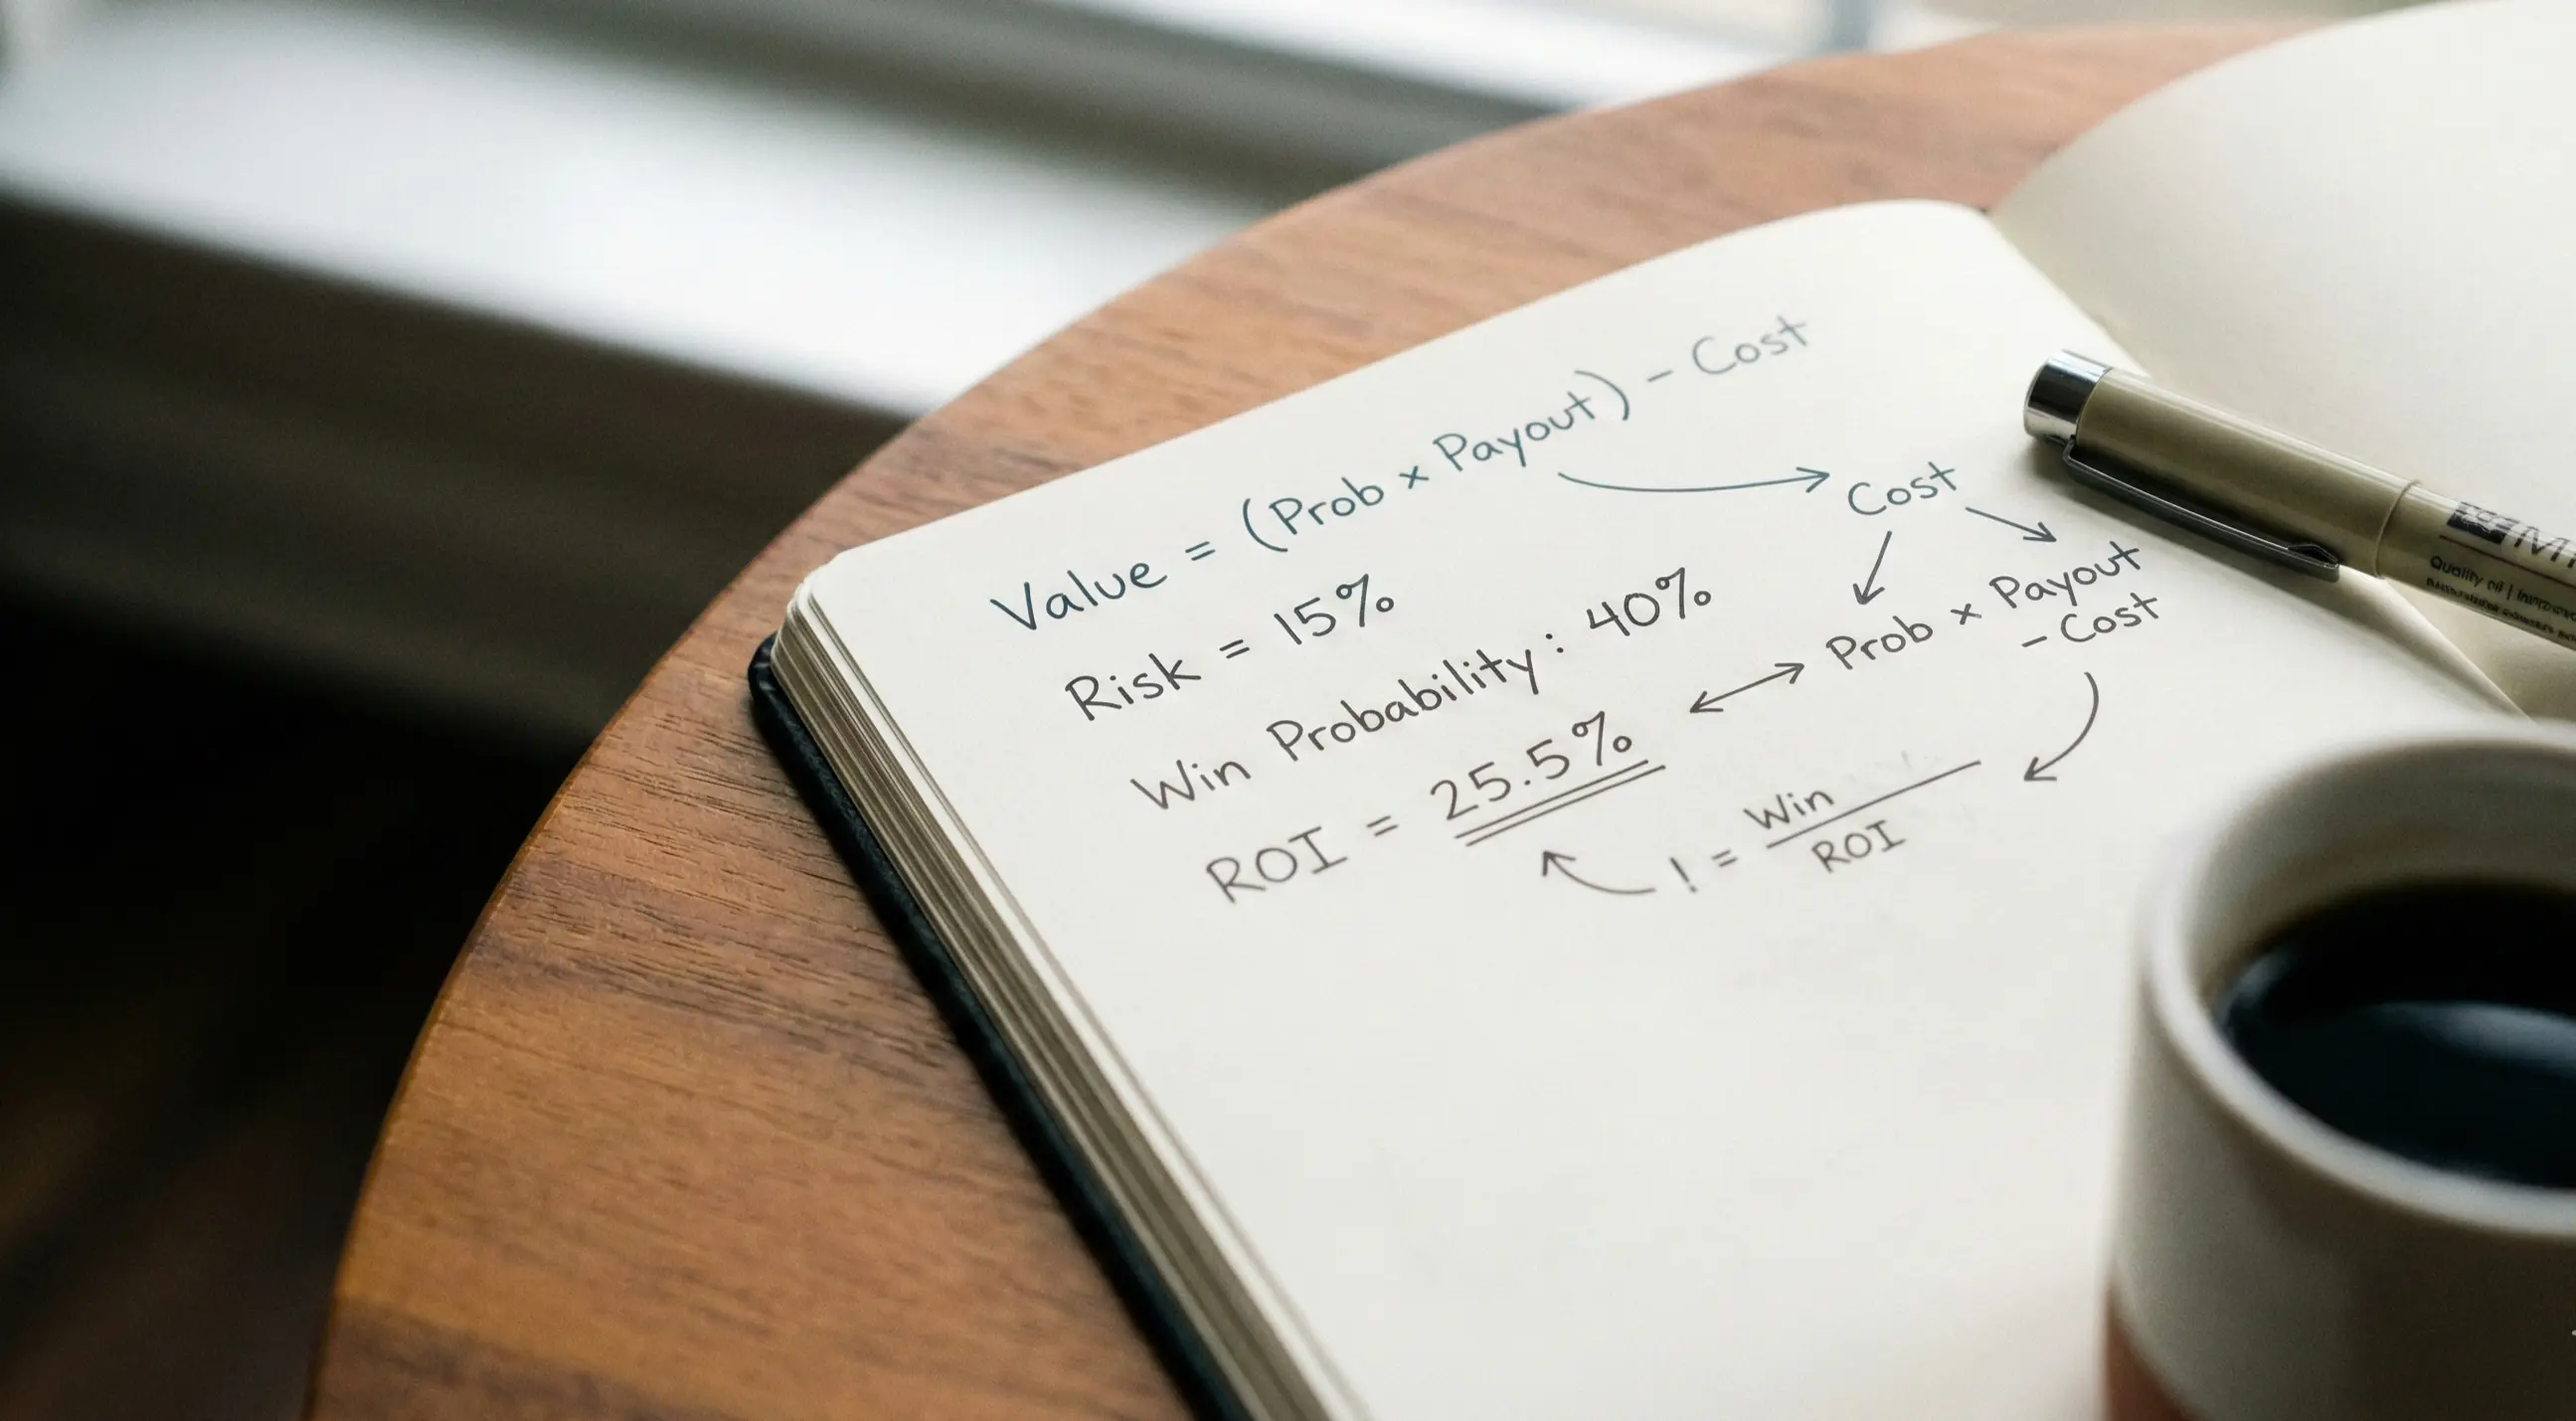 Value = (Prob × Payout) – Cost
Cost
Risk = 15%
Win Probability: 40%
Prob × Payout
– Cost
ROI = 25.5%
! = Win
ROI
Quality